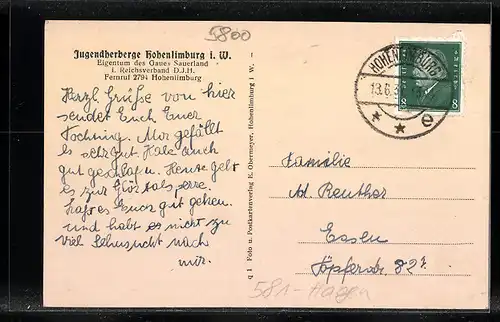 5800
Jugendherberge Hohenlimburg i. W.
Eigentum des Gaues Sauerland
i. Reichsverband D.J.H.
Fernruf 2794 Hohenlimburg
Herzl. Grüße von hier
sendet Euch Euer
Mir gefällt
es sehr gut. Habe auch
gut geschlafen. Heute geht
es zur Glörtalsperre.
Laßt es Euch gut gehen.
und habt es nicht zu
viel Sehnsucht nach
mir.
q 1 Foto u. Postkartenverlag E. Obermeyer, Hohenlimburg i. W.
HOHENLIMBURG
13.6.3
* * e
8 8
Familie
Reuther
Essen
Töpferstr. 82
581-Hagen